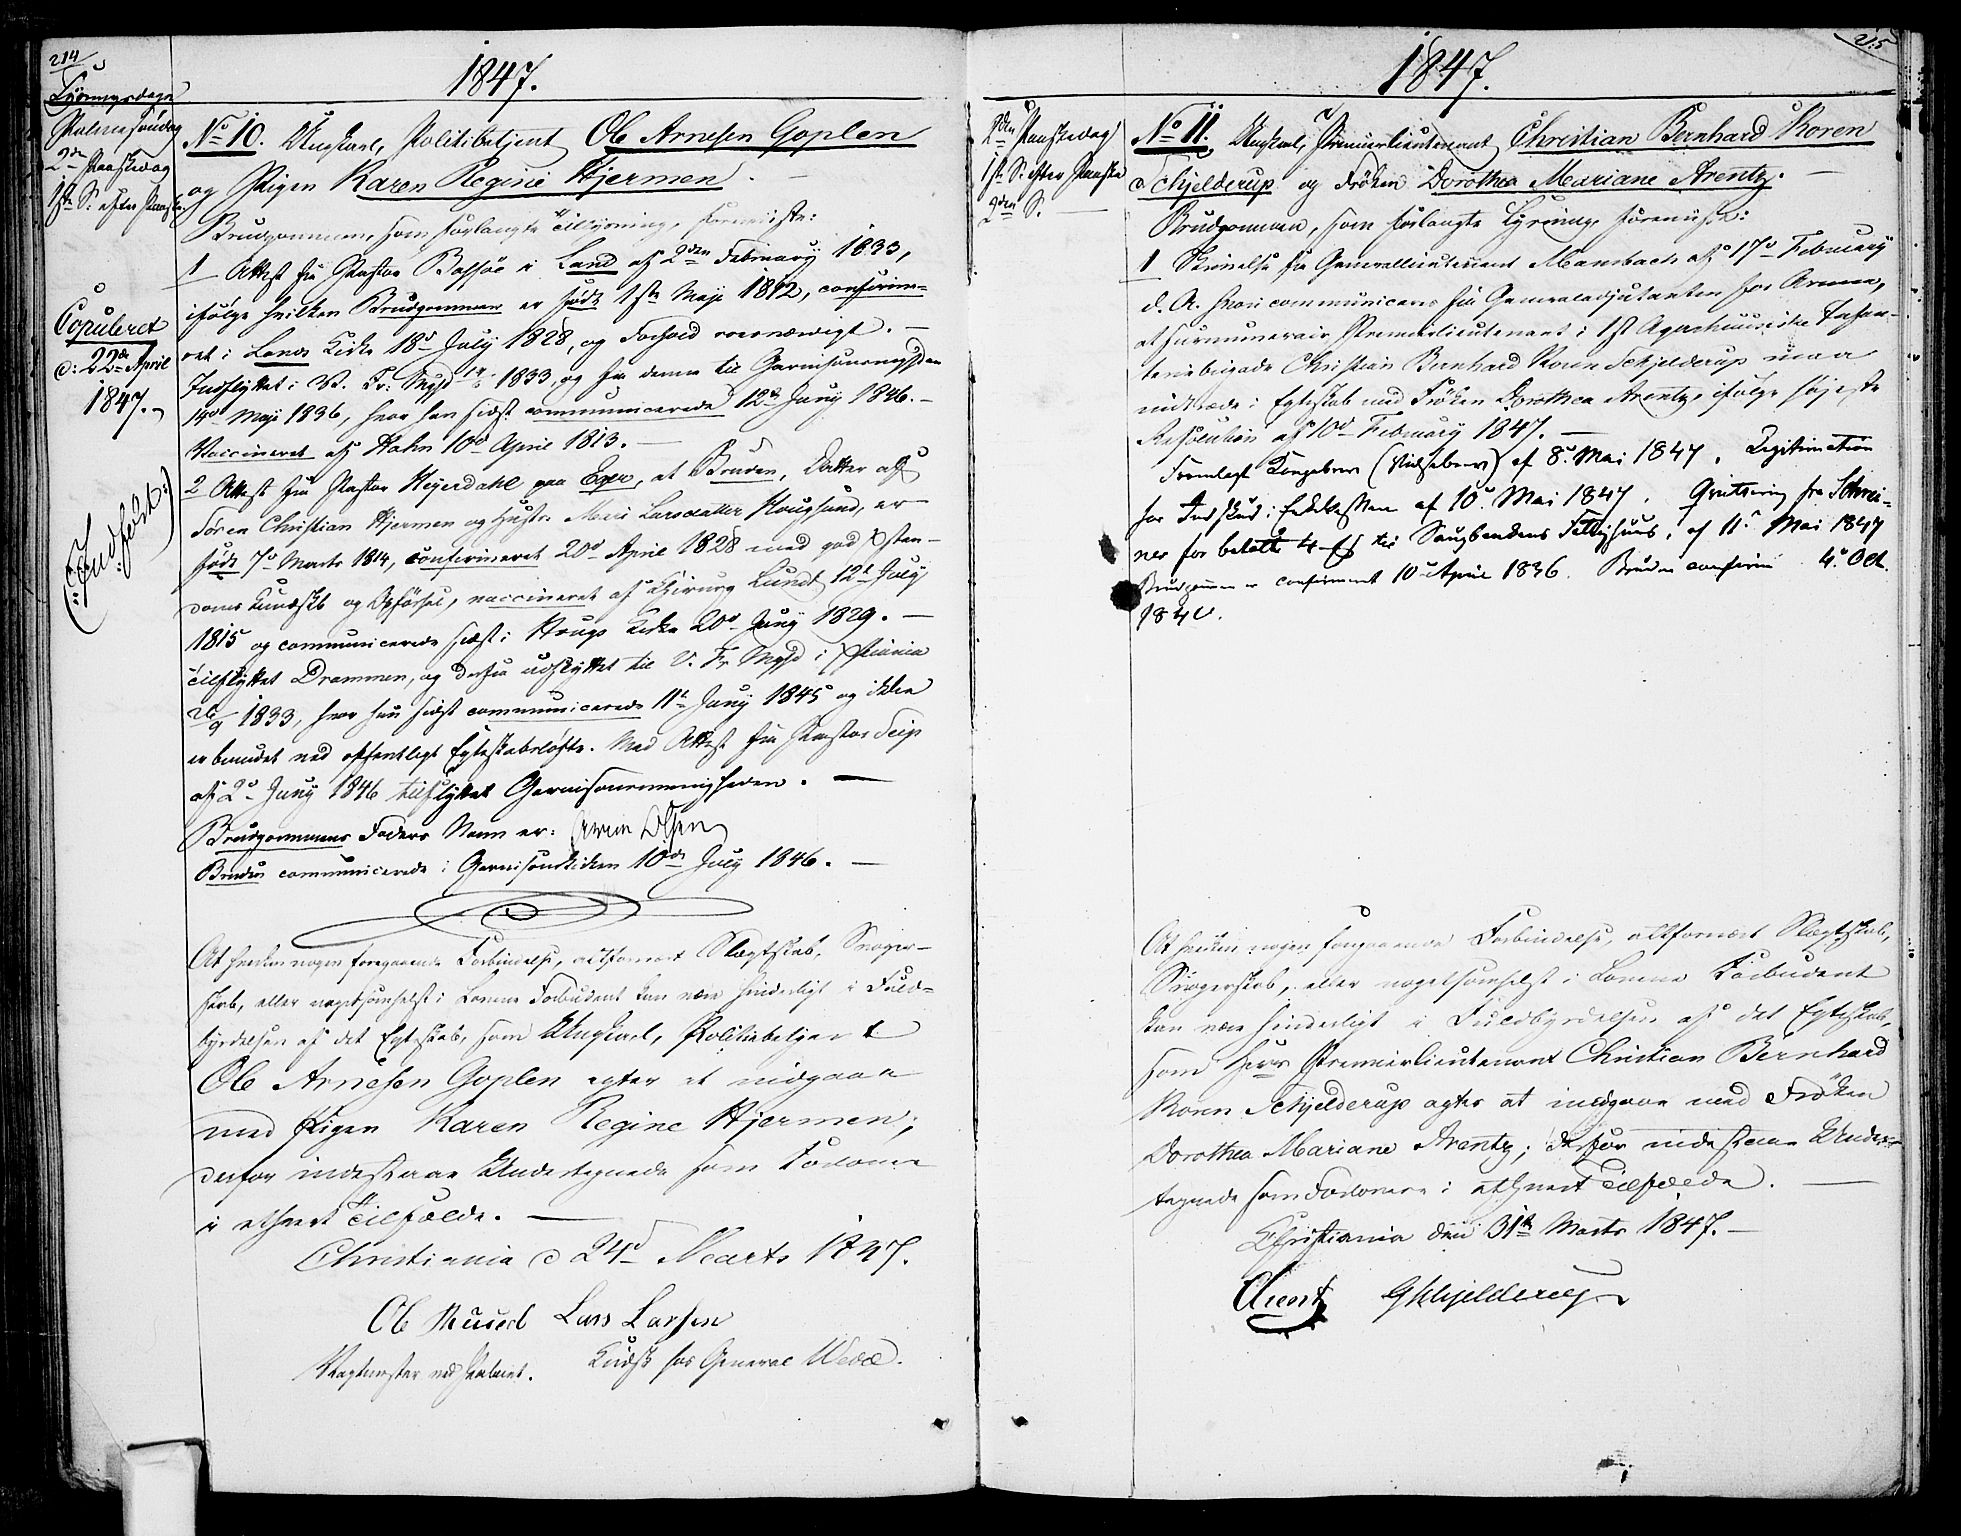 214
1847.
Lysningsdage
Palmesöndag
2den Paaskedag
1ste S: efter Paaske
Copuleret
d: 22de April
1847.
(: Indført :)
No 10. Ungkarl, Politibetjent Ole Arnesen Goplen
og Pigen Karen Regine Hjermen.
Brudgommen, som forlangte Tillysning, foreviiste:
1 Attest fra Pastor Bassöe i Land af 2den February 1833,
ifølge hvilken Brudgommen er født 1ste Maji 1812, confirme-
ret i Lands Kirke 18d July 1828, og Forhold roesværdigt.
Indflyttet i V. Fr: Mgsd 1833, og fra denne til Garnisonsmgheden
14d Maji 1836, hvor han sidst communicerede 12te Juny 1846.
Vaccineret af Hahn 10d April 1813.
2 Attest fra Pastor Heyerdahl paa Eger, at Bruden, Datter af
Søren Christian Hjermen og Hustru Mari Larsdatter Hougsund, er
født 7d Marts 1814, confirmeret 20d April 1828 med god Xsten-
doms Kundskb og Opførsel, vaccineret af Chirurg Lundt 12te July
1815 og communicerede sidst i Hougs Kirke 20d Juny 1829.
Tilflyttet Drammen, og derfra udflyttet til V. Fr Mgsd i Xstiania
26/9 1833, hvor hun sidst communicerede 11te Juny 1845 og ikke
er bundet ved offentligt Egteskabsløfte. Med Attest fra Pastor Teip
af 2d Juny 1846 tilflyttet Garnisonsmenigheden.
Brudgommens Faders Navn er: Arne Olsen
Bruden communicerede i Garnisonskirken 10de July 1846.
At hverken nogen foregaaende Forbindelse, altfornært Slægtskab, Svoger-
skab, eller nogetsomhelst i Lovene Forbudent kan være hinderligt i Fuld-
byrdelsen af det Egteskab, som Ungkarl, Politiebetjent
Ole Arnesen Goplen agter at indgaae
med Pigen Karen Regine Hjermen;
derfor indestaae Undertegnede som Forlovere
i ethvert Tilfælde.
Christiania d 24d Marts 1847.
Ole Ruud Lars Larsen
Vagtmester ved Palaiet. Kudsk hos General Wedel.
215
1847.
2den Paaskedag
1ste S. efter Paaske
2den S.
No 11. Ungkarl, Premierlieutenant Christian Bernhard Koren
Schjelderup og Frøken Dorothea Mariane Arentz.
Brudgommen, som forlangte Lysning, foreviiste:
1 Skrivelse fra Generallieutenant Mansbach af 17d February
d. A. hvori communiceres fra Generaladjutanten for Armeen,
at surnumerair Premierlieutenant i 1st Agershuusiske Infan-
teriebrigade Christian Bernhard Koren Schjelderup maa
indtræde i Egteskab med Frøken Dorothea Arentz, ifølge højeste
Resolution af 10d February 1847.
Fremlagt Kongebrev (Vielsebrev) af 8d Mai 1847. Legitimation
for Indskud i Enkekassen af 10d Mai 1847. Qvittering fra Schrei-
ner for betalte 4 til Saugbankens Fattighuus, af 11d Mai 1847
Brudgommen er confirmeret 10d April 1836. Bruden confirm 4d Oct.
1840.
At hverken nogen foregaaende Forbindelse, altfornært Slægtskab,
Svogerskab, eller nogetsomhelst i Lovene Forbudent
kan være hinderligt i Fuldbyrdelsen af det Egteskab,
som Herr Premierlieutenant Christian Bernhard
Koren Schjelderup agter at indgaae med Frøken
Dorothea Mariane Arentz; derfor indestaae Under-
tegnede som Forlovere i ethvert Tilfælde.
Christiania den 31te Marts 1847.
Arentz GSchjelderup